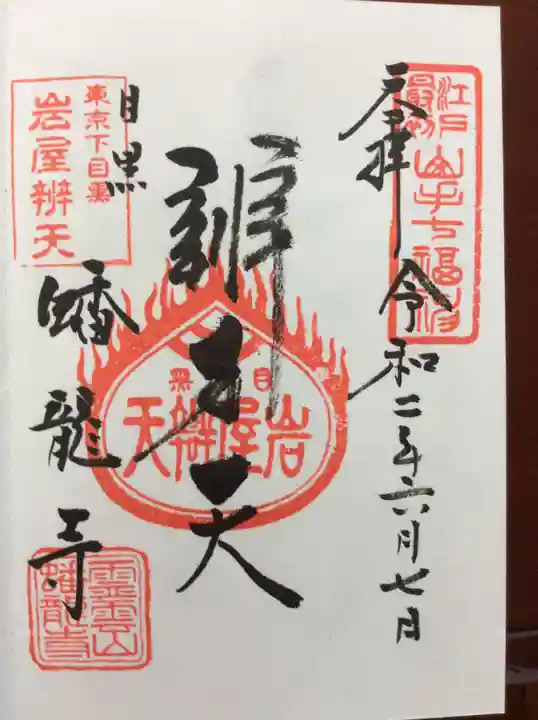 奉拝
令和二年六月七日
江戸最初
山手七福神
辨才天
目黒
岩屋辨天
目黒
蟠龍寺
東京下目黒
岩屋辨天
霊雲山
蟠龍寺